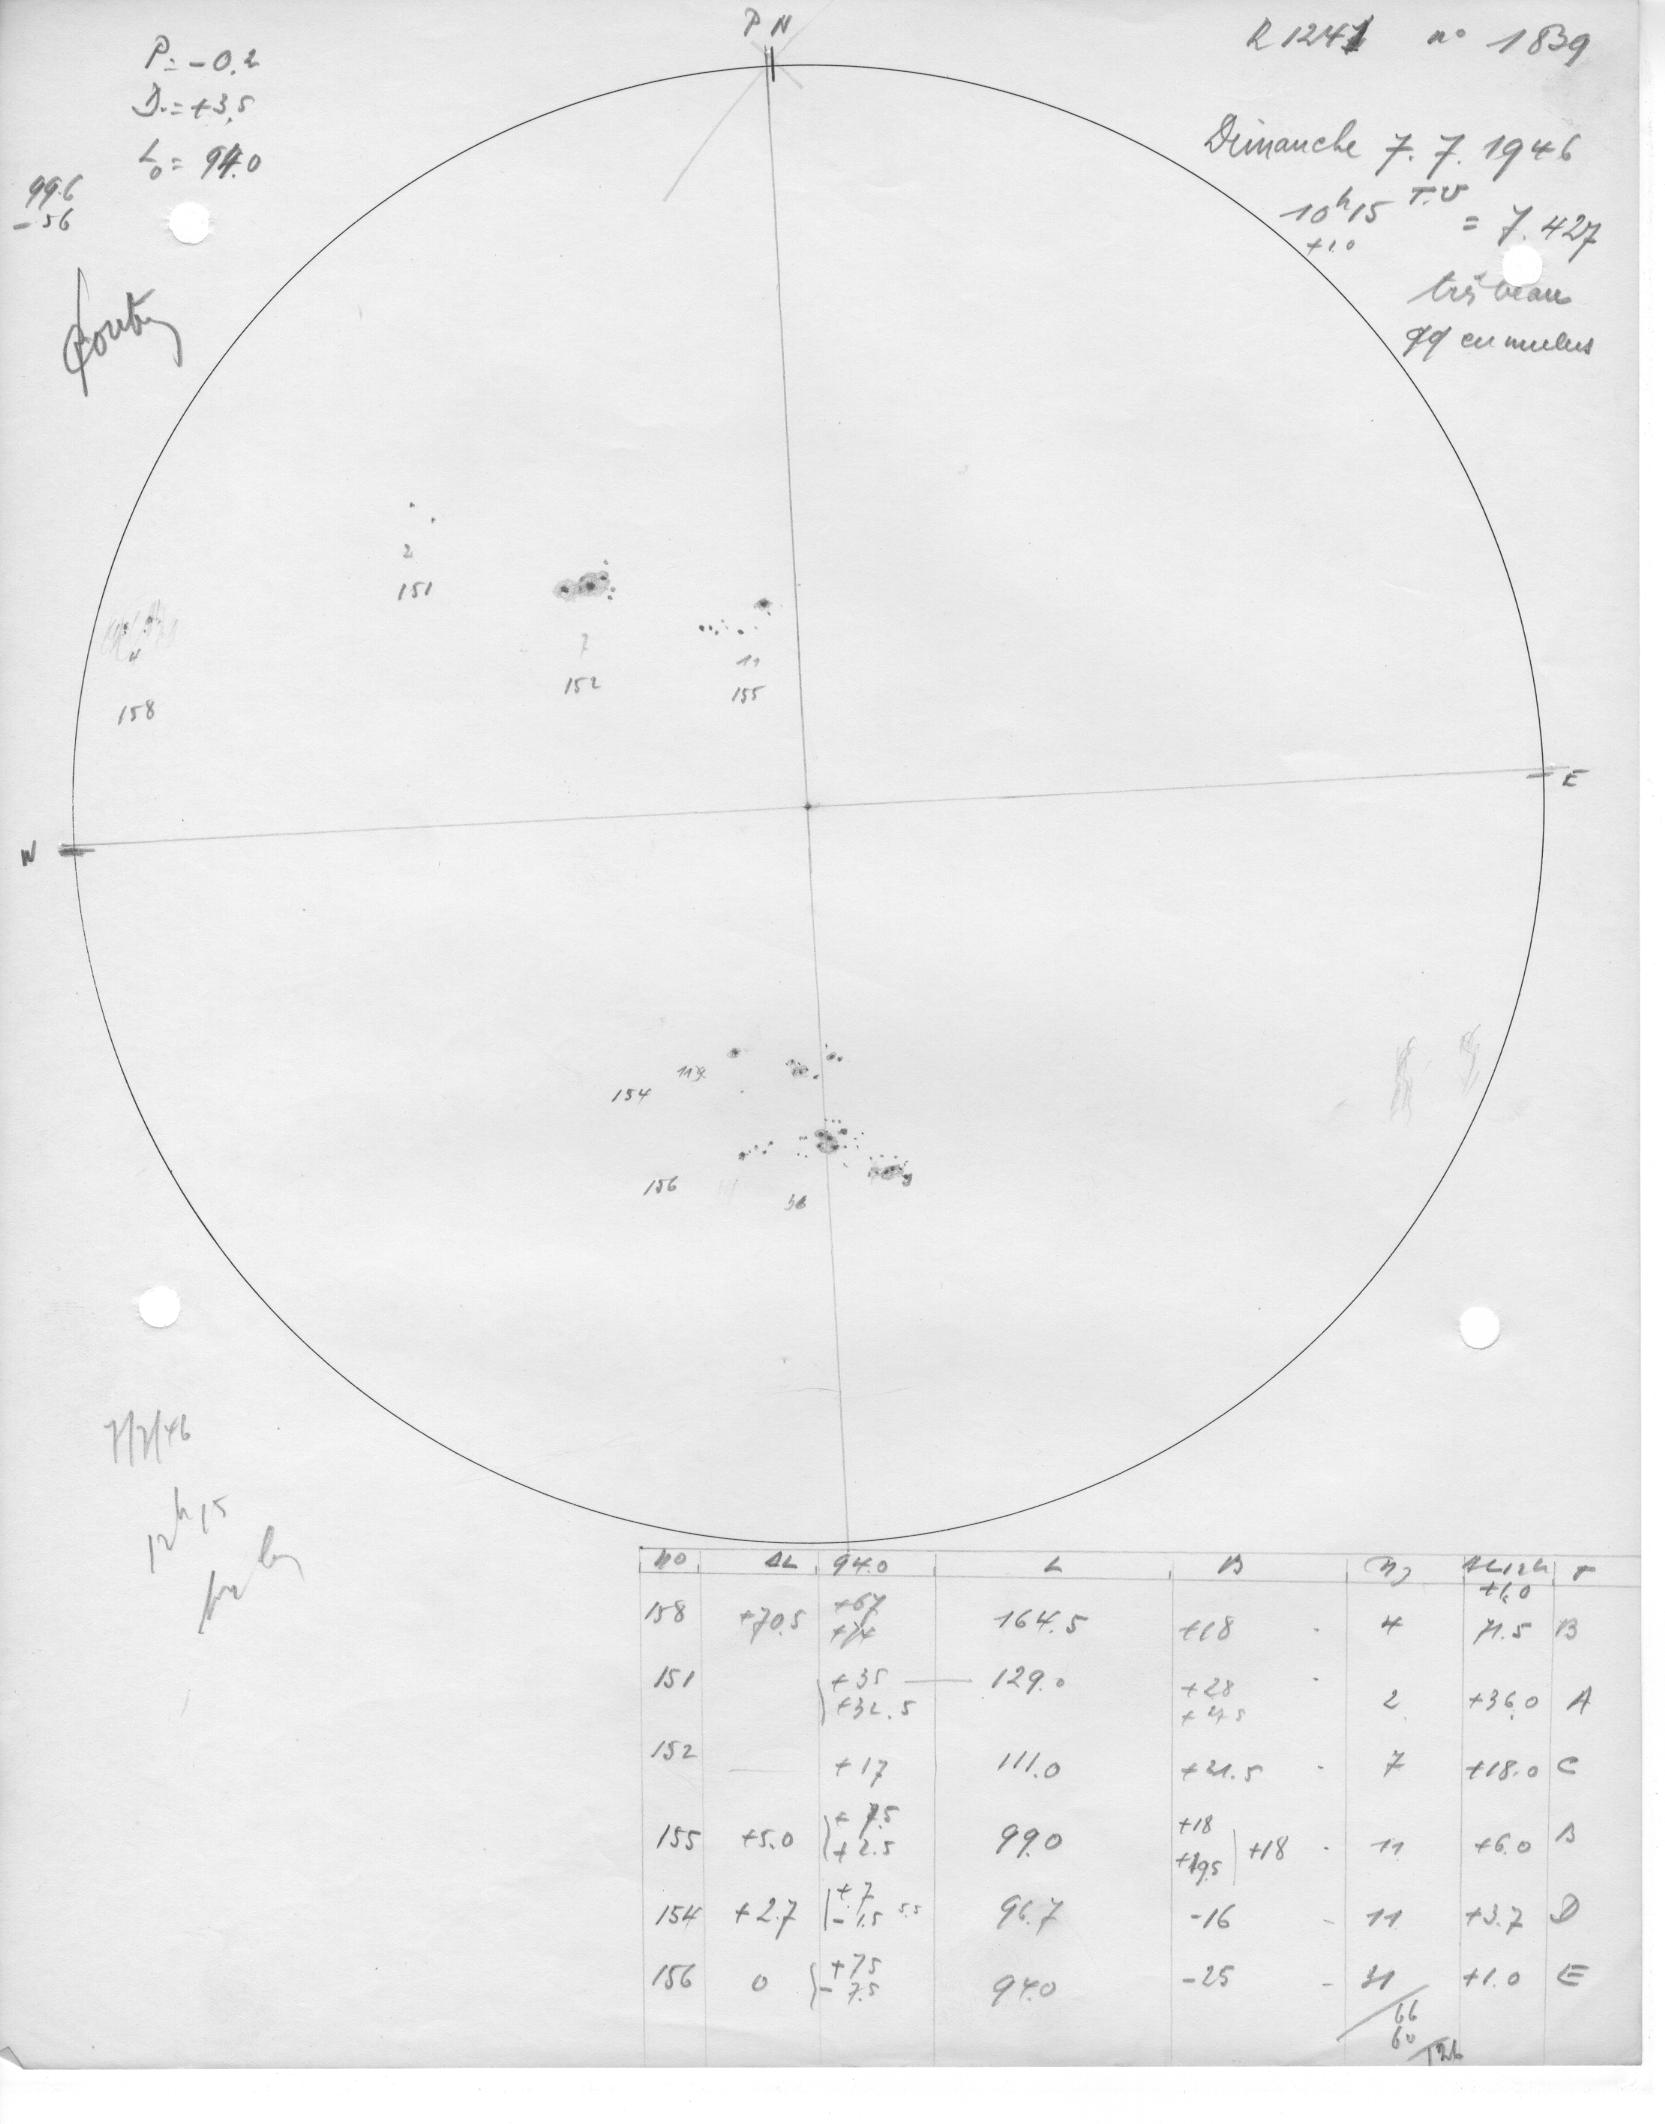 P N
R 1241 n° 1839
P = -0.2
D = +3,5
L₀ = 94.0
99.6
- 56
Dimanche 7.7.1946
10h15 T.U = 7.427
+1.0
très beau
qq cumulus
2
151
4
158
7
152
11
155
W
E
11
154
156
7/7/46
12h15
NO ΔL 94.0 L B
158 +70.5 +67 +74 164.5 +18 4 71.5 B
+1.0
151 +35 +32.5 129.0 +28 2 +36.0 A
152 +17 111.0 +21.5 7 +18.0 C
155 +5.0 +7.5 +2.5 99.0 +18 +19.5 +18 11 +6.0 B
154 +2.7 +7 -1.5 5.5 96.7 -16 11 +3.7 D
156 0 +7.5 -7.5 94.0 -25 31 +1.0 E
66
60
126